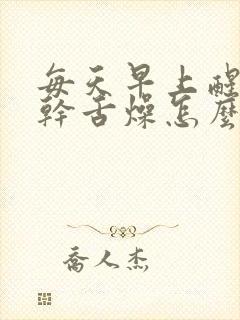 每天早上醒
幹舌燥怎麼
喬人杰